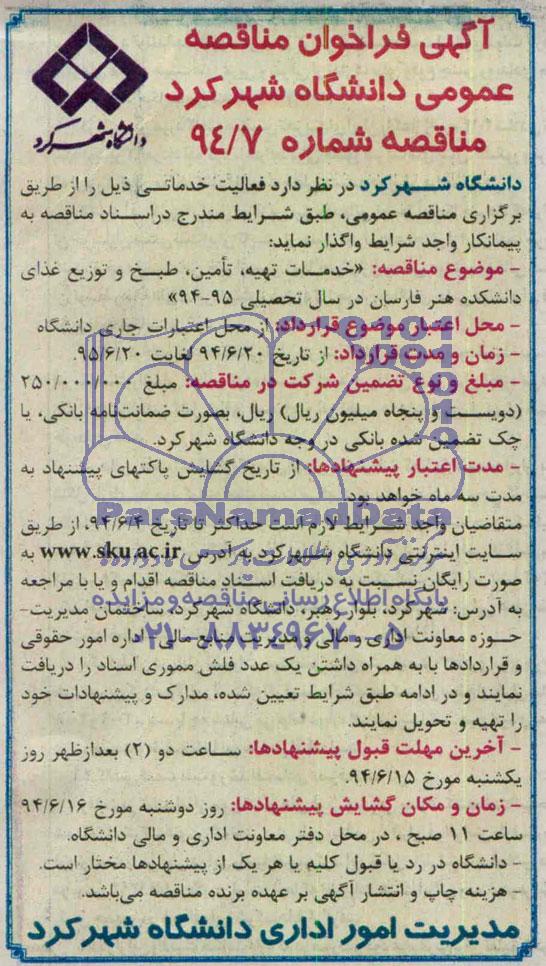 آگهی فراخوان مناقصه
عمومی دانشگاه شهرکرد
مناقصه شماره ۹۴/۷
دانشگاه شهرکرد
دانشگاه شهرکرد در نظر دارد فعالیت خدماتی ذیل را از طریق
برگزاری مناقصه عمومی، طبق شرایط مندرج در اسناد مناقصه به
پیمانکار واجد شرایط واگذار نماید:
- موضوع مناقصه: «خدمات تهیه، تأمین، طبخ و توزیع غذای
دانشکده هنر فارسان در سال تحصیلی ۹۵-۹۴»
- محل اعتبار موضوع قرارداد: از محل اعتبارات جاری دانشگاه
- زمان و مدت قرارداد: از تاریخ ۹۴/۶/۲۰ لغایت ۹۵/۶/۲۰.
- مبلغ و نوع تضمین شرکت در مناقصه: مبلغ ۲۵۰/۰۰۰/۰۰۰
(دویست و پنجاه میلیون ریال) ریال، بصورت ضمانت‌نامه بانکی، یا
چک تضمین شده بانکی در وجه دانشگاه شهرکرد.
- مدت اعتبار پیشنهادها: از تاریخ گشایش پاکتهای پیشنهاد به
مدت سه ماه خواهد بود
متقاضیان واجد شرایط لازم است حداکثر تا تاریخ ۹۴/۶/۴، از طریق
سایت اینترنتی دانشگاه شهرکرد به آدرس www.sku.ac.ir به
صورت رایگان نسبت به دریافت اسناد مناقصه اقدام و یا با مراجعه
به آدرس: شهرکرد، بلوار رهبر، دانشگاه شهرکرد، ساختمان مدیریت-
حوزه معاونت اداری و مالی و مدیریت منابع مالی - اداره امور حقوقی
و قراردادها با به همراه داشتن یک عدد فلش مموری اسناد را دریافت
نمایند و در ادامه طبق شرایط تعیین شده، مدارک و پیشنهادات خود
را تهیه و تحویل نمایند.
- آخرین مهلت قبول پیشنهادها: ساعت دو (۲) بعدازظهر روز
یکشنبه مورخ ۹۴/۶/۱۵.
- زمان و مکان گشایش پیشنهادها: روز دوشنبه مورخ ۹۴/۶/۱۶
ساعت ۱۱ صبح ، در محل دفتر معاونت اداری و مالی دانشگاه.
- دانشگاه در رد یا قبول کلیه یا هر یک از پیشنهادها مختار است.
- هزینه چاپ و انتشار آگهی بر عهده برنده مناقصه می‌باشد.
مدیریت امور اداری دانشگاه شهرکرد
ParsNamadData
پایگاه اطلاع رسانی مناقصه و مزایده
۰۲۱-۸۸۳۴۹۶۷۰-۵